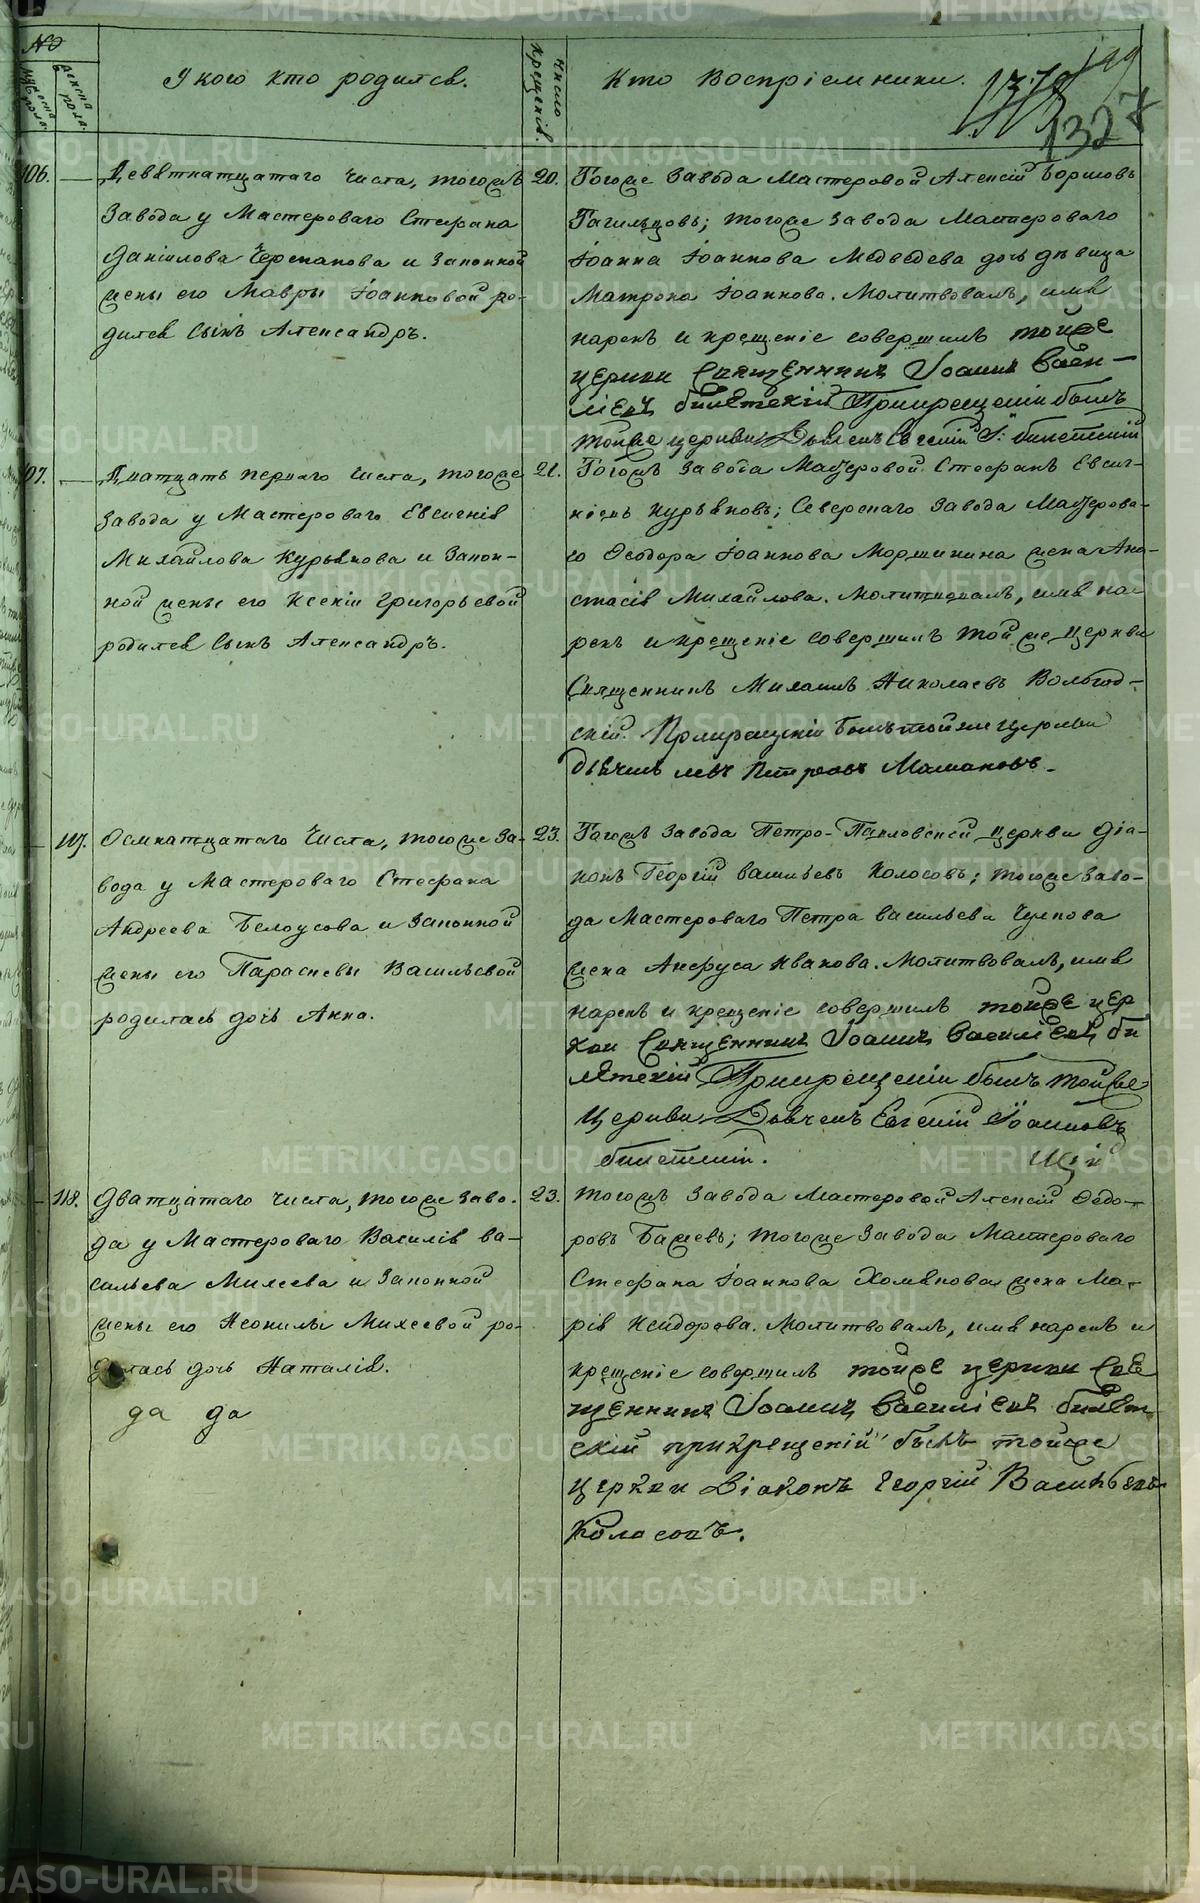 №
мужеска пола.
женска пола.
У кого кто родился.
Число крещенія.
Кто воспріемники.
199
1327
106.
Девятнатцатаго числа, тогожъ
завода у Мастероваго Стефана
Даніилова Черепанова и законной
жены его Мавры Іоанновой ро-
дился сынъ Александръ.
20.
Тогоже завода Мастеровой Алексій Борисовъ
Тагильцовъ; тогоже завода Мастероваго
Іоанна Іоаннова Медведева дочь дѣвица
Матрона Іоаннова. Молитвовалъ, имя
нарекъ и крещеніе совершилъ тойже
церкви Священникъ Іоаннъ Васи-
ліевъ билетскій При крещеніи былъ
тойже церкви Дьячекъ Евгеній І: билетскій
107.
Дватцать перваго числа, тогоже
завода у Мастероваго Евсигнія
Михайлова Курьянова и закон-
ной жены его Ксеніи Григорьевой
родился сынъ Александръ.
21.
Тогожъ завода Мастеровой Стефанъ Евсиг-
ніевъ Курьяновъ; Северскаго завода Мастерова-
го Ѳеодора Іоаннова Моршинина жена Ана-
стасія Михайлова. Молитвовалъ, имя на-
рекъ и крещеніе совершилъ той же церкви
Священникъ Михаилъ Николаевъ Вологод-
скій. При крещеніи былъ той же церкви
дьячекъ левъ Петровъ Мамановъ.
117.
Осмнатцатаго числа, тогоже за-
вода у Мастероваго Стефана
Андреева Белоусова и законной
жены его Параскевы Васильевой
родилась дочь Анна.
23.
Тогожъ завода Петро-Павловской церкви діа-
конъ Георгій васильевъ Колосовъ; тогоже заво-
да Мастероваго Петра васильева
жена Анфуса Иванова. Молитвовалъ, имя
нарекъ и крещеніе совершилъ тойже цер
кви Священникъ Іоаннъ Василіевъ би
летскій При крещеніи былъ тойже
Церкви Дьячекъ Евгеній Іоанновъ
билетскій.
118.
Дватцатаго числа, тогоже заво-
да у Мастероваго Василія ва-
сильева Михеева и законной
жены его Неонилы Михеевой ро-
дилась дочь Наталія.
да да
23.
Тогожъ завода Мастеровой Алексій Ѳедо-
ровъ Бажевъ; тогоже завода Мастероваго
Стефана Іоаннова Хомякова жена Ма-
рія Исидорова. Молитвовалъ, имя нарекъ и
крещеніе совершилъ тойже церкви Свя
щенникъ Іоаннъ Василіевъ билет
скій при крещеніи былъ тойже
церкви Діаконъ Георгій Васильевъ
Колосовъ.
METRIKI.GASO-URAL.RU